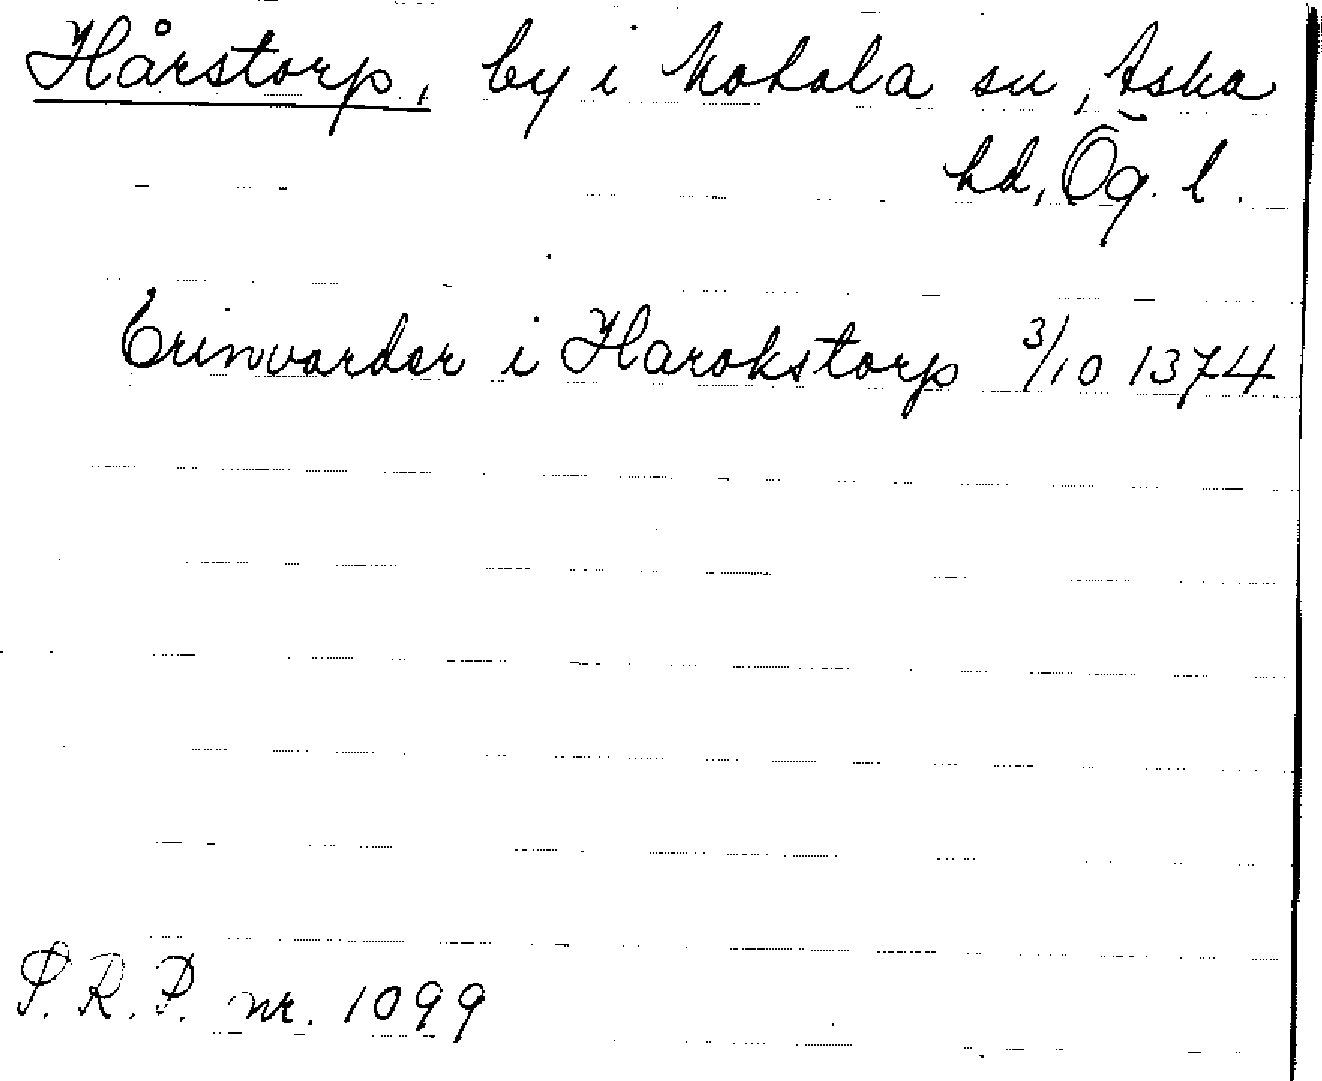 Hårstorp, by i Motala sn, Aska
hd, Ög. l.
Erinvarder i Harokstorp 3/10 1374
P.R.P. nr. 1099